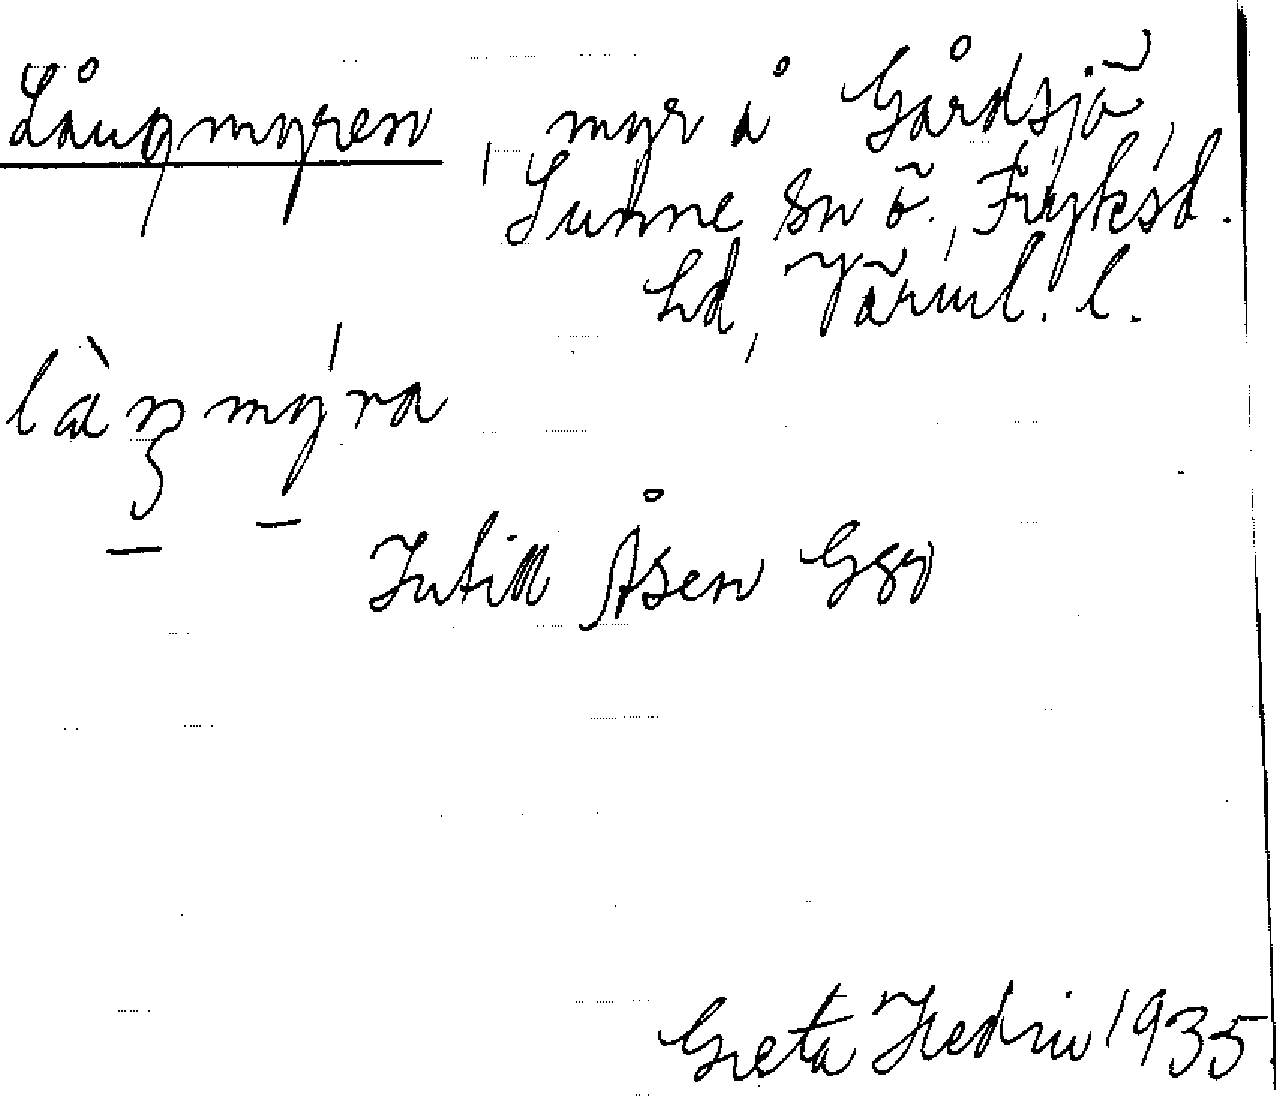 Långmyren, myr å Gårdsjö,
Sunne sn ö. Fryksd.
hd, Värml. l.
làŋmýra
Åsen Gsö
Greta Hedin 1935.